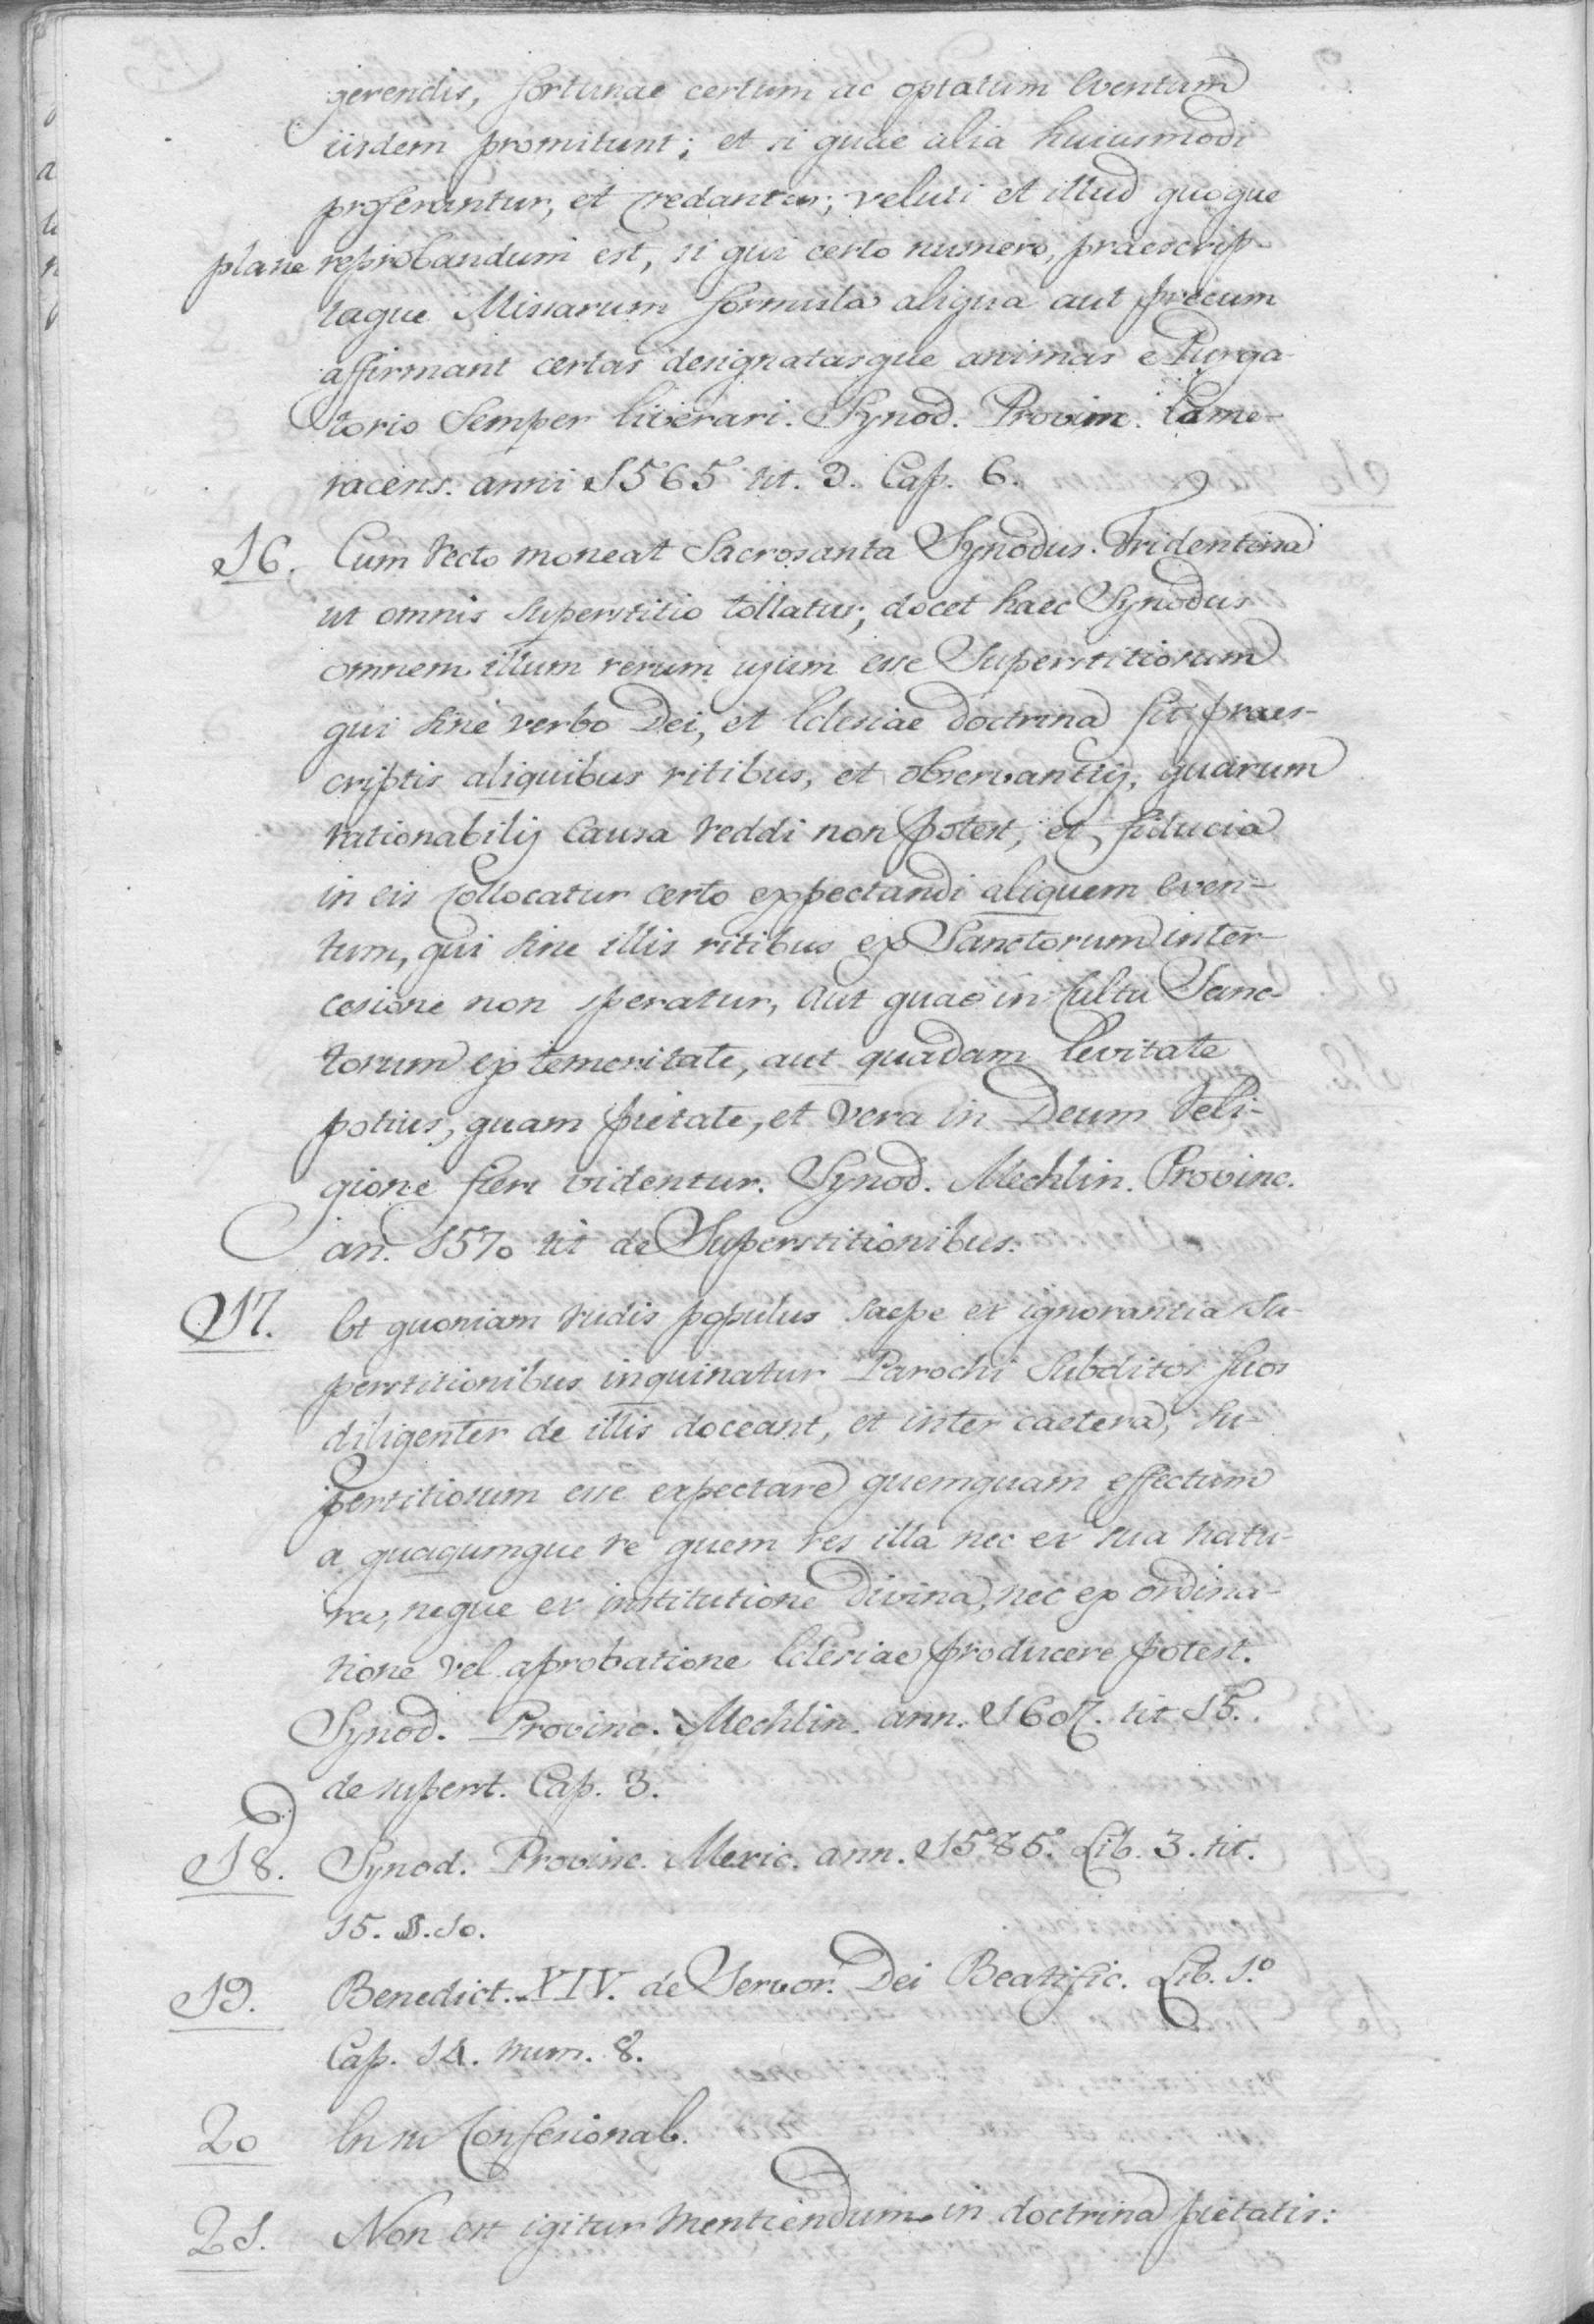 gerendis, fortunae certum ac optatum eventum
iisdem promitunt; et si quae alia huiusmodi
proferantur, et credantur; veluti et illud quoque
plane reprobandum est, si qui certo numero, praescrip-
taque Missarum formula aliqua aut precum
affirmant certas designatasque animas e Purga-
torio semper liberari. Synod. Provin. Came-
racens. anni 1565 tit. 9. Cap. 6.
16. Cum recto moneat Sacrosanta Synodus Tridentina
ut omnis superstitio tollatur, docet haec Synodus
omnem illum rerum usum esse Superstitiosum
qui sine verbo Dei, et Eclesiae doctrina fit praes-
criptis aliquibus ritibus, et observantiis, quarum
rationabilis causa reddi non potest, et fiducia
in eis collocatur certo expectandi aliquem even-
tum, qui sine illis ritibus ex Sanctorum inter-
cesione non speratur, aut quae in cultu Sanc-
torum ex temeritate, aut quadam levitate
potius, quam pietate, et vera in Deum Reli-
gione fieri videntur. Synod. Mechlin. Provinc.
an. 1570 tit de Superstitionibus.
17. Et quoniam rudis populus saepe ex ignorantia su-
perstitionibus inquinatur Parochi subditos suos
diligenter de illis doceant, et inter caetera, su-
perstitiosum esse expectare quemquam effectum
a quaqumque re quem res illa nec ex sua natu-
ra, neque ex institutione Divina, nec ex ordina-
tione vel aprobatione Eclesiae producere potest.
Synod. Provinc. Mechlin. ann. 1607. tit 15.
de superst. Cap. 3.
18. Synod. Provinc. Mexic. ann. 1585. Lib. 3. tit.
15. §. 10.
19. Benedict. XIV. de Servor. Dei Beatific. Lib. 1.º
Cap. 14. num. 8.
20 En su Confesionab.
21. Non est igitur mentiendum in doctrina pietatis: